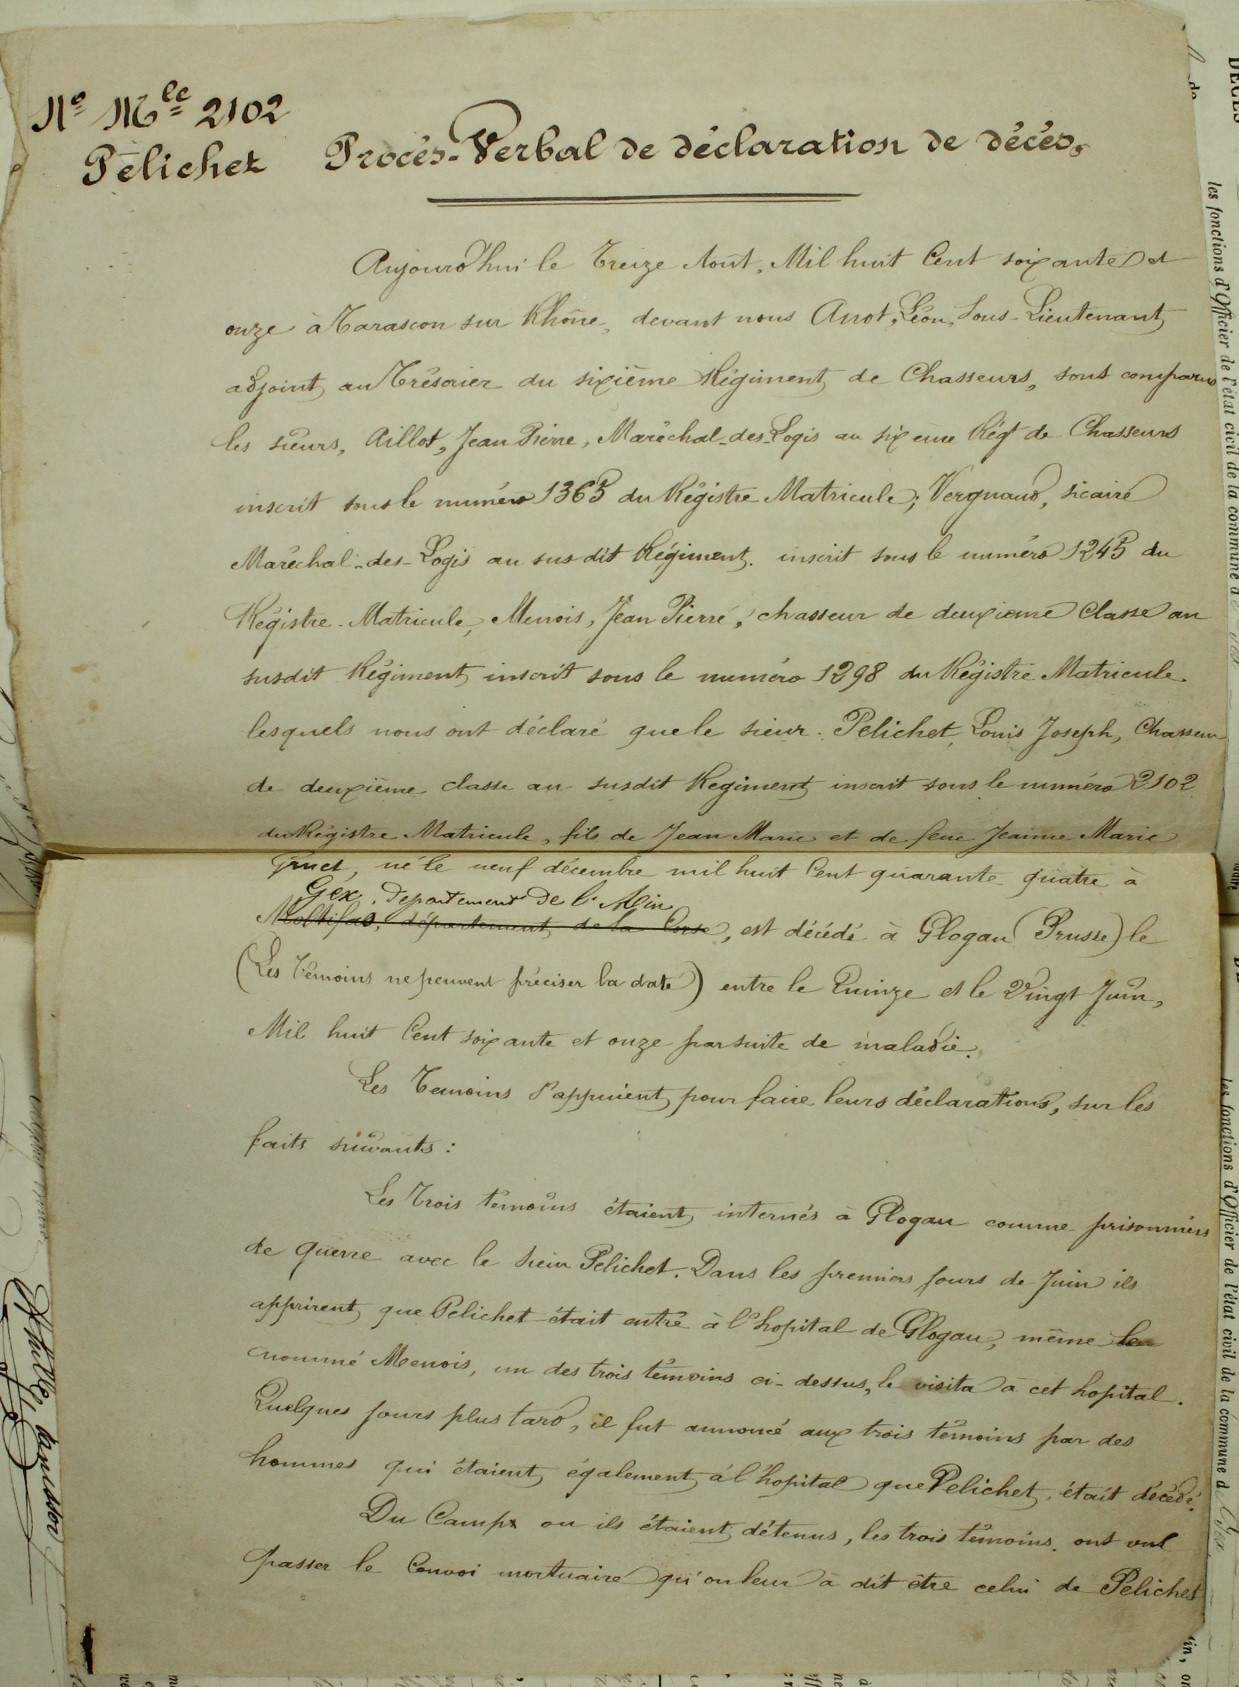 Nº Mle 2102
Pelichet
Procès-Verbal de déclaration de décès.
Aujourd'hui le Treize Août, Mil huit Cent soixante et
onze à Tarascon sur Rhône, devant nous Anot, Léon, Sous-Lieutenant
adjoint au Trésorier du sixième Régiment de Chasseurs, sont comparus
les sieurs, Aillot, Jean Pierre, Maréchal-des-Logis au sixième Régt de Chasseurs
inscrit sous le numéro 1365 du Régistre Matricule; Vergnaud, sicaire
Maréchal-des-Logis au susdit Régiment. inscrit sous le numéro 1245 du
Régistre-Matricule, Menois, Jean Pierre, chasseur de deuxième Classe au
susdit Régiment, inscrit sous le numéro 1298 du Régistre Matricule.
lesquels nous ont déclaré que le sieur Pelichet, Louis Joseph, Chasseur
de deuxième classe au susdit Régiment inscrit sous le numéro 2102
du Régistre Matricule, fils de Jean Marie et de feue Jeanne Marie
Gruet, né le neuf décembre mil huit Cent quarante-quatre à
Gex. Departement De l'Ain
Moltifao, département de la Corse, est décédé à Glogau (Prusse) le
(Les Témoins ne peuvent préciser la date) entre le Quinze et le Vingt Juin,
Mil huit Cent soixante et onze par suite de maladie.
Les Temoins s'appuient pour faire leurs déclarations, sur les
faits suivants :
Les Trois témoins étaient internés à Glogau comme prisonniers
de guerre avec le sieur Pelichet. Dans les premiers jours de Juin ils
apprirent que Pelichet était entré à l'hopital de Glogau, même le
nommé Menois, un des trois témoins ci-dessus, le visita à cet hopital.
Quelques jours plus tard, il fut annoncé aux trois témoins par des
hommes qui étaient également à l'hopital que Pelichet, était décédé.
Du Camp ou ils étaient détenus, les trois témoins. ont vu
passer le Convoi mortuaire qu'on leur à dit être celui de Pelichet
les fonctions d'Officier de l'état civil de la commune d
les fonctions d'Officier de l'état civil de la commune d